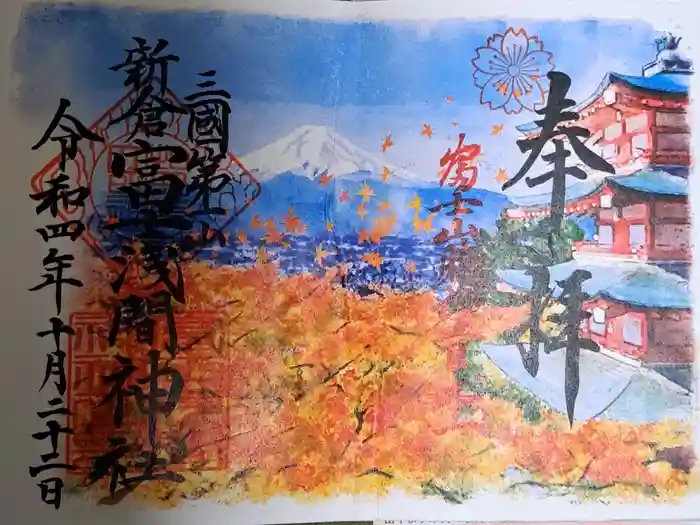 奉拝
富士山
三國第一山
新倉富士浅間神社
令和四年十月二十二日